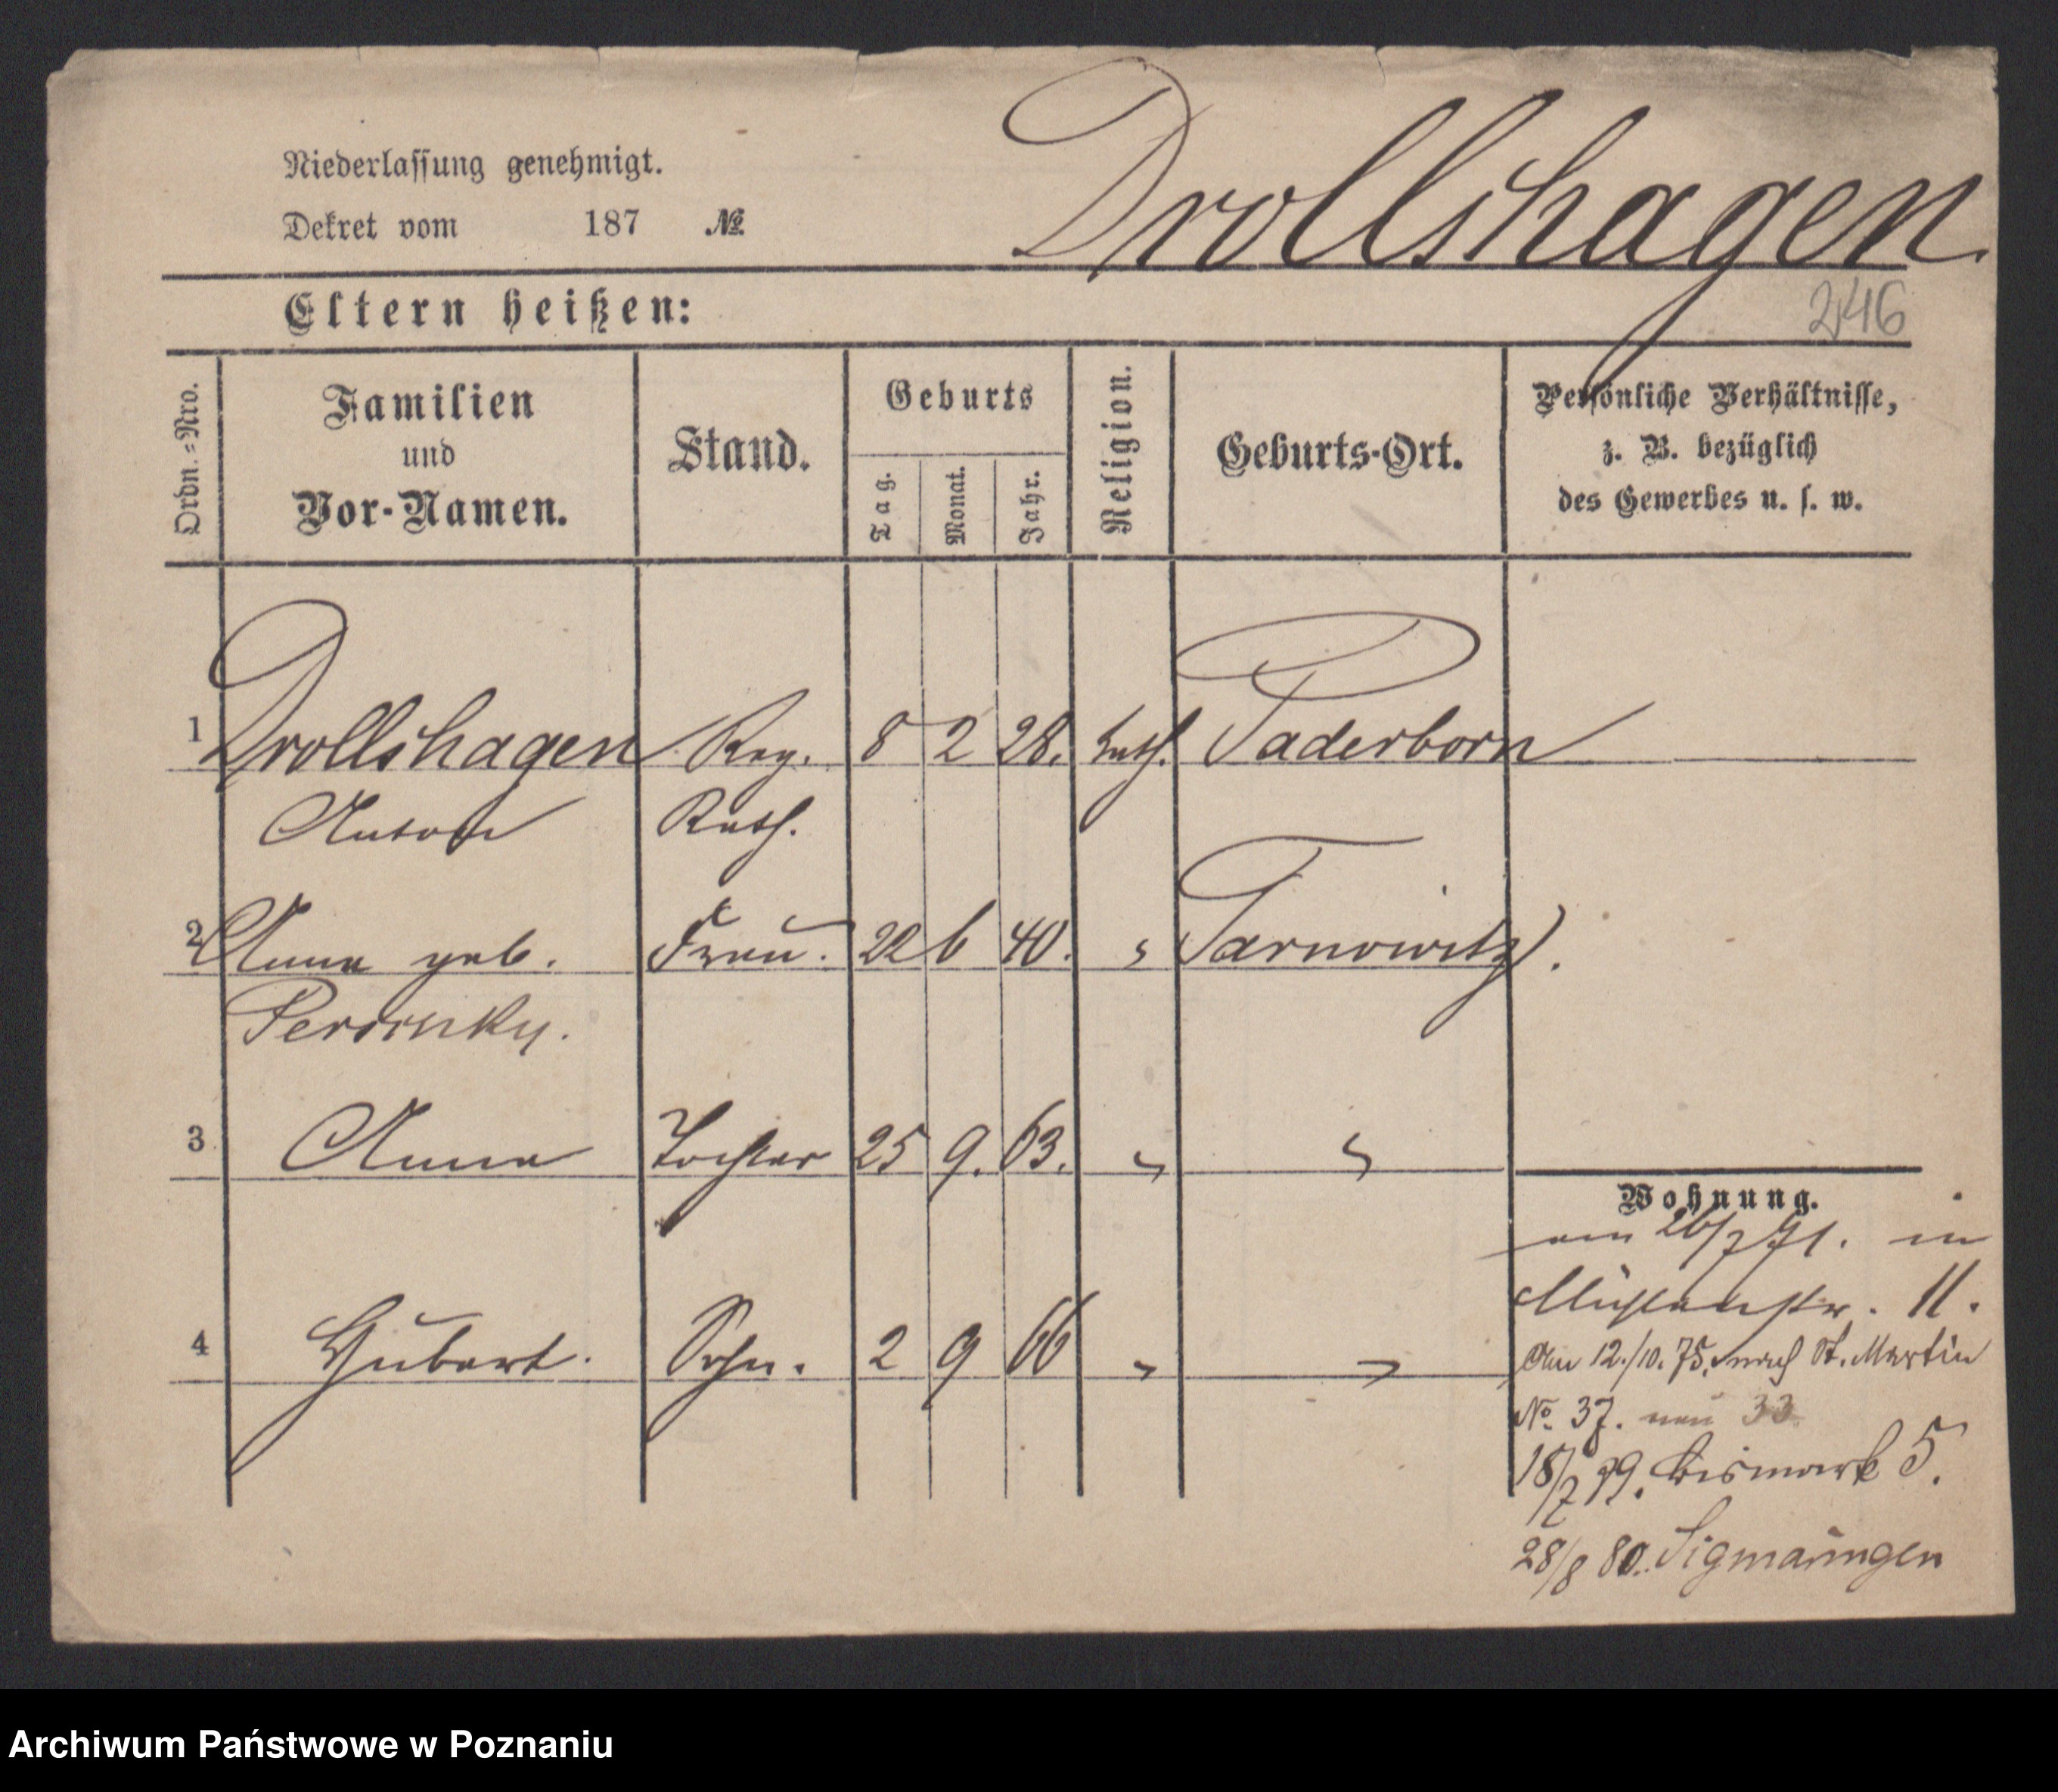 Drollshagen.
Niederlassung genehmigt.
Dekret vom 187 №
246
Eltern heißen:
Ordn.=Nro.
Familien und Vor-Namen.
Stand.
Geburts
Tag. Monat. Jahr.
Religion.
Geburts-Ort.
Persönliche Verhältnisse, z. B. bezüglich des Gewerbes u. s. w.
1 Drollshagen Reg. 8 2 28. kath. Paderborn
Anton Rath.
2 Anna geb. Frau. 22 6 40. " Tarnowitz.
3 Anna Tochter 25 9. 63. " "
4 Hubert. Sohn. 2 9 66 " "
Wohnung.
am 26/7 71. in
Mühlenstr. 11.
Am 12./10. 75. nach St. Martin
No. 37. neu 33
18/7 79. Bismark 5.
28/8 80. Sigmaringen
Archiwum Państwowe w Poznaniu